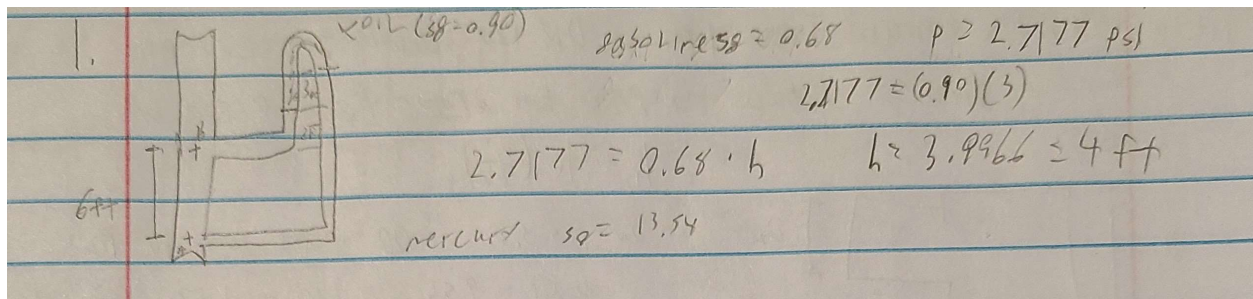 1. oil (sg=0.90) gasoline sg = 0.68 P = 2.7177 psi
2.7177 = (0.90)(3)
2.7177 = 0.68 · h h = 3.9966 = 4 ft
6ft
mercury sg = 13.54